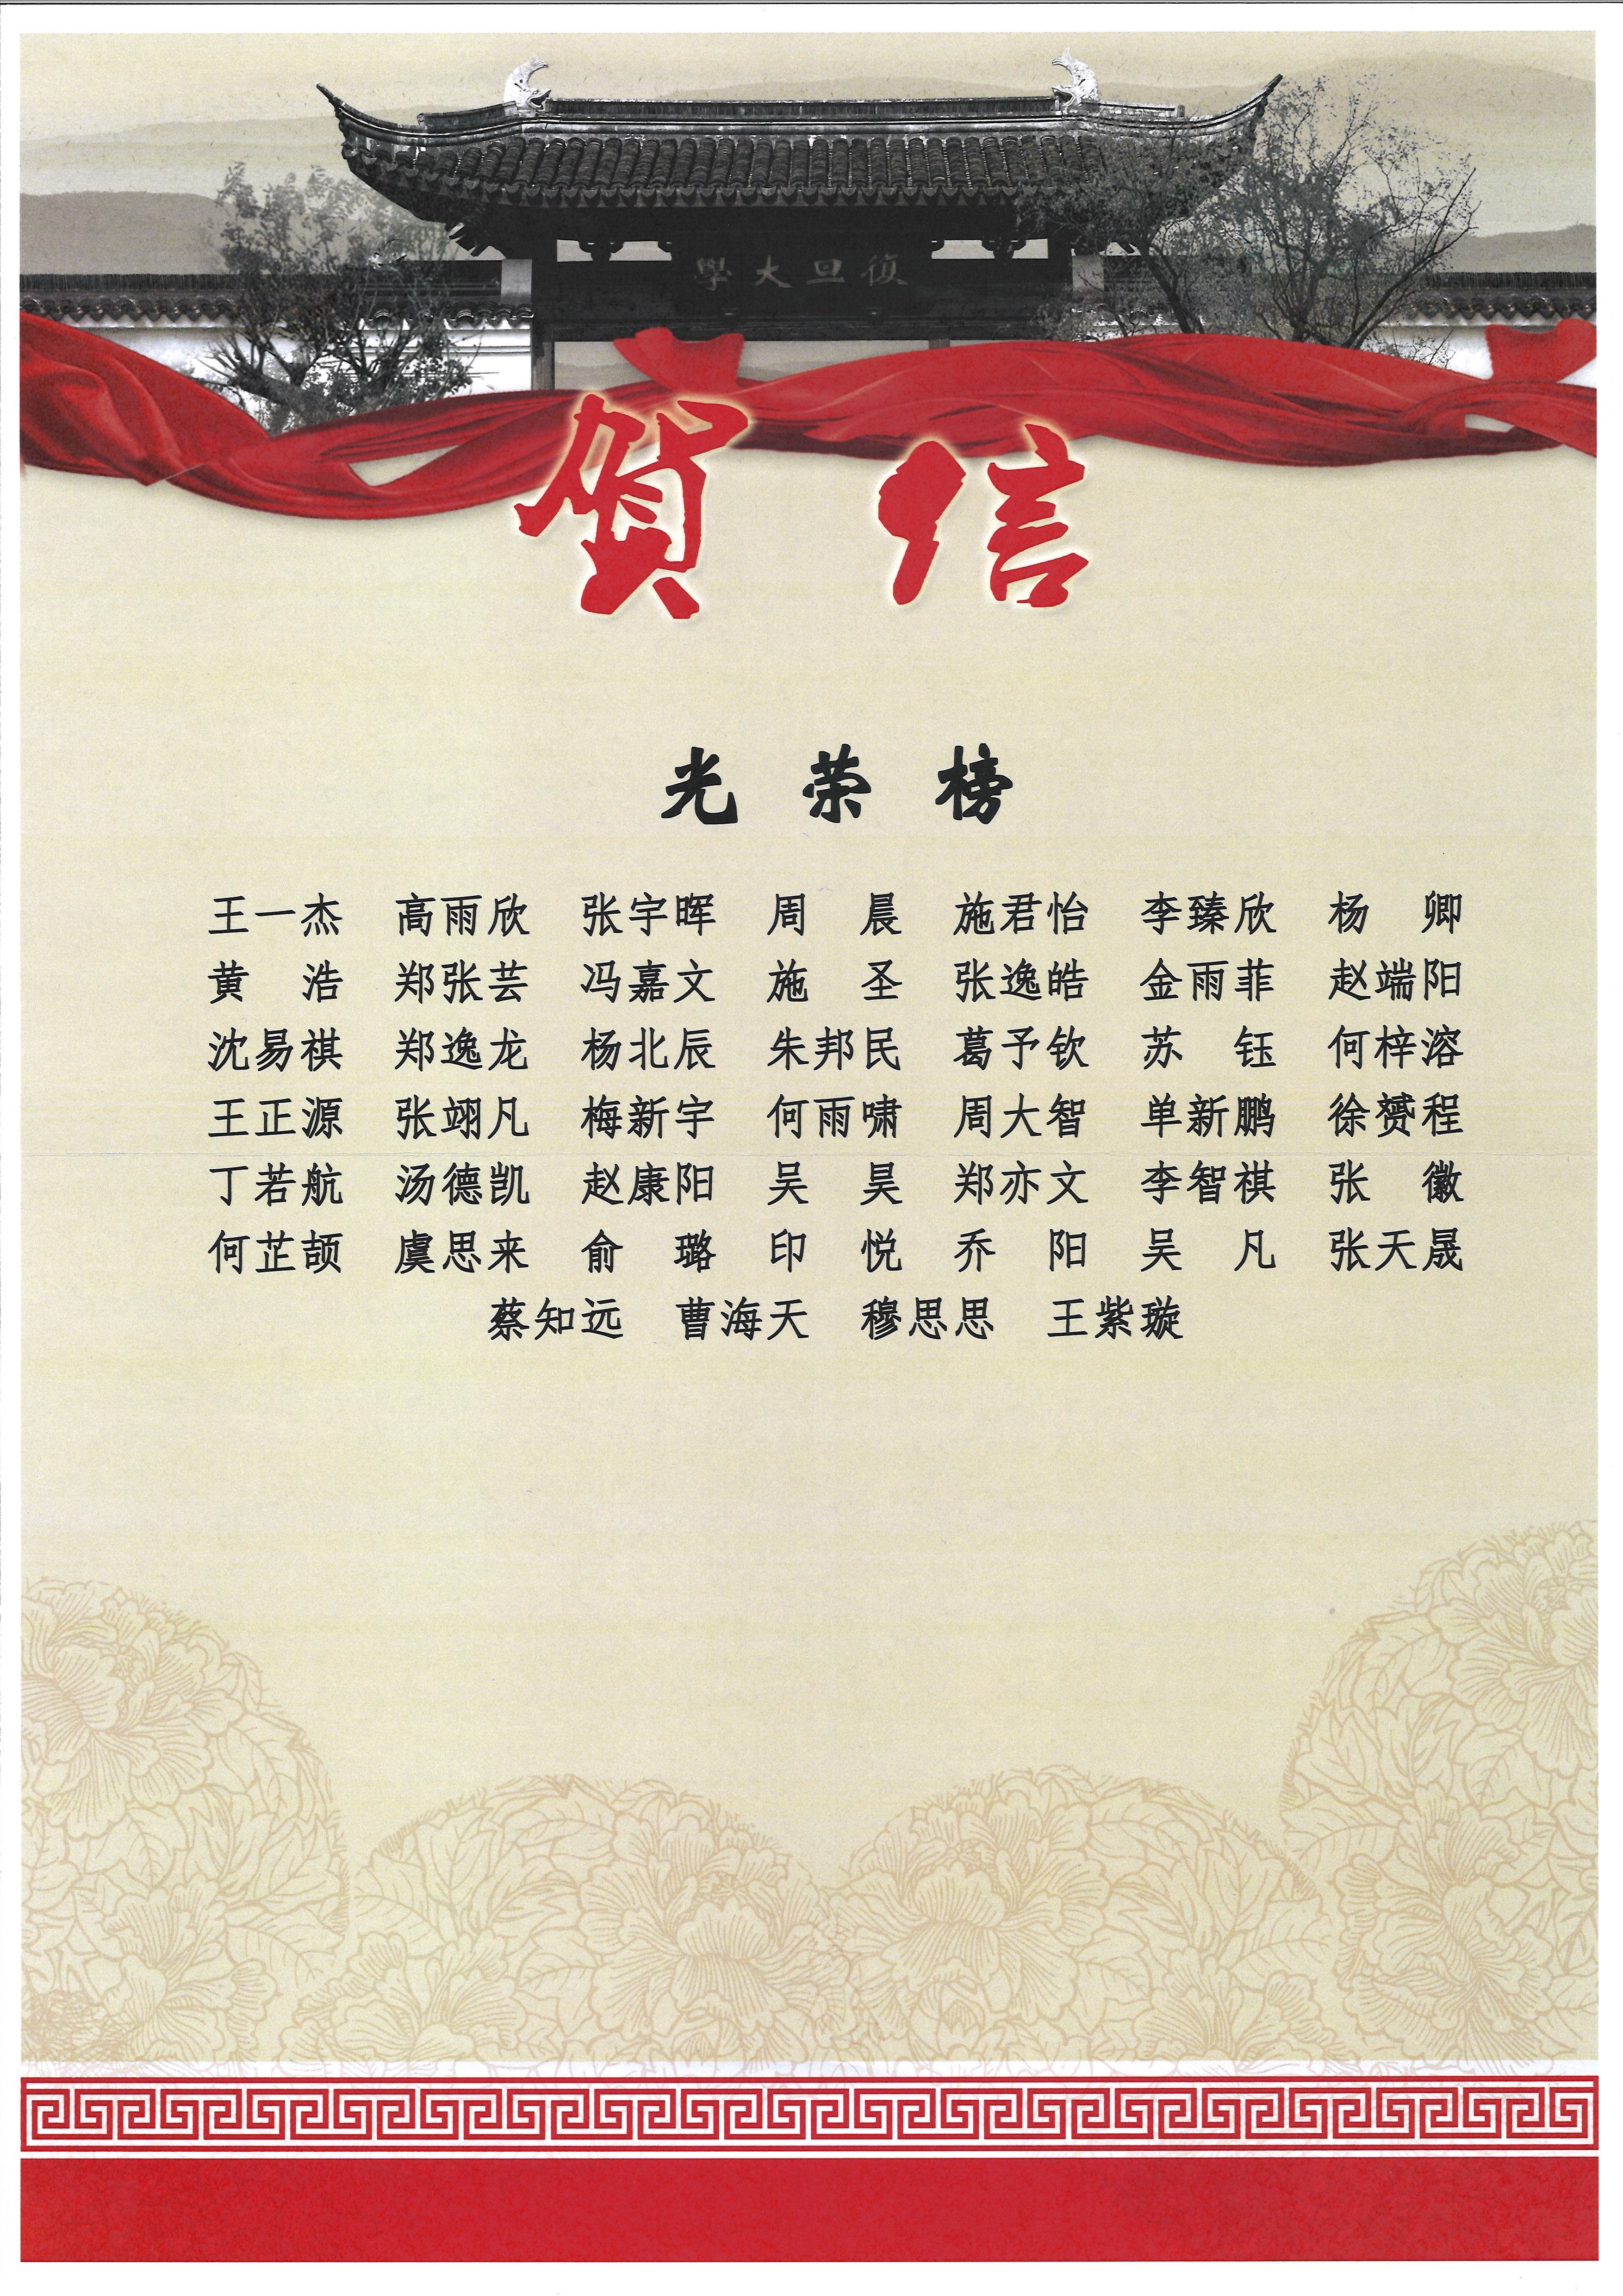 學大旦復
賀信
光荣榜
王一杰 高雨欣 张宇晖 周晨 施君怡 李臻欣 杨卿
黄浩 郑张芸 冯嘉文 施圣 张逸皓 金雨菲 赵端阳
沈易祺 郑逸龙 杨北辰 朱邦民 葛予钦 苏钰 何梓溶
王正源 张翊凡 梅新宇 何雨啸 周大智 单新鹏 徐赟程
丁若航 汤德凯 赵康阳 吴昊 郑亦文 李智祺 张徽
何芷颉 虞思来 俞璐 印悦 乔阳 吴凡 张天晟
蔡知远 曹海天 穆思思 王紫璇